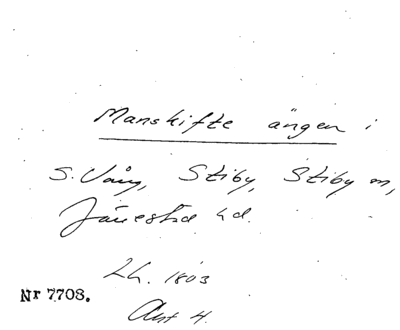 Manskifte ängen i
S. Vång, Stiby, Stiby m,
Järrestad hd.
Lh. 1803
Nr 7708.
Akt 4.